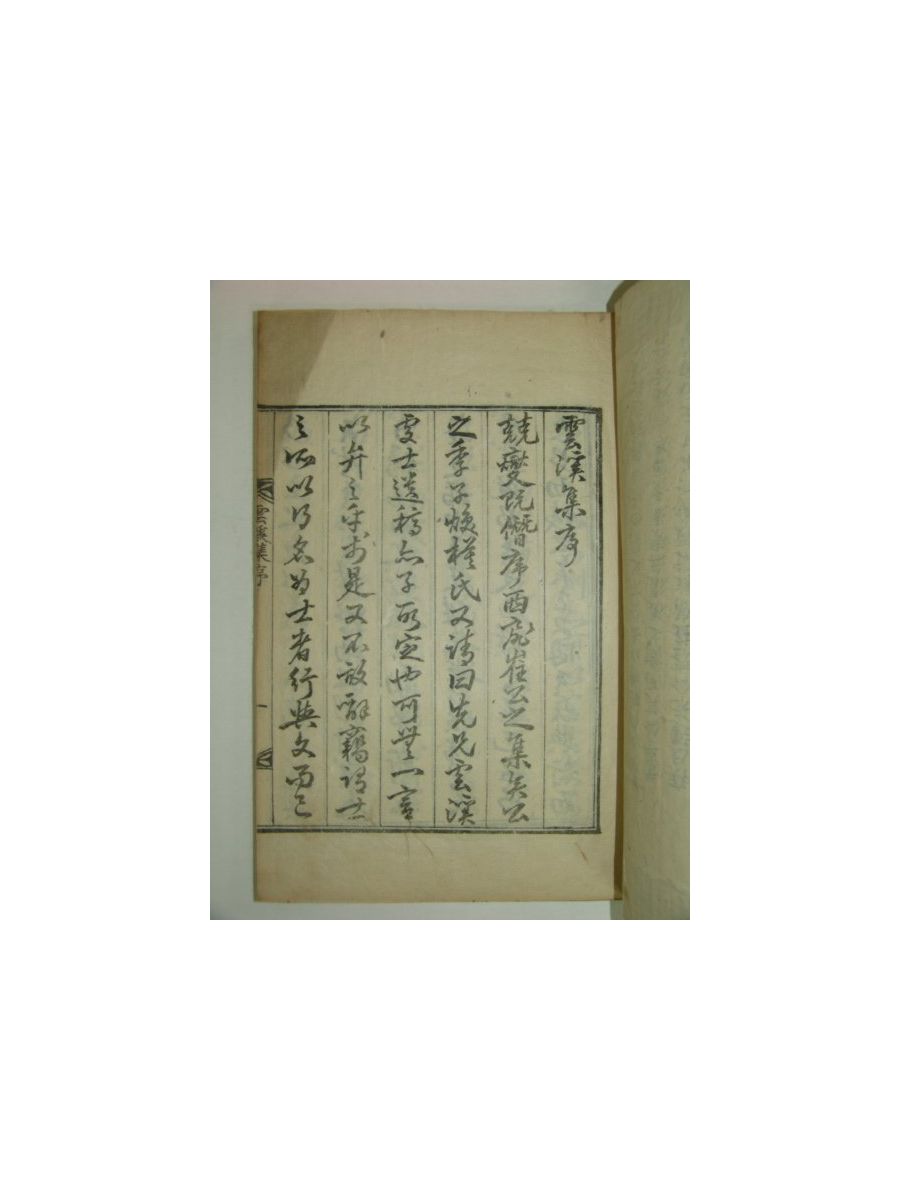 雲溪集序
兢燮既僭序西庛崔公之集矣公
之季子煥模氏又請曰先兄雲溪
處士遺稿亦子所定也可無一言
以弁之乎於是又不敢辭竊謂士
之所以得名為士者行與文而已
雲溪集序
一